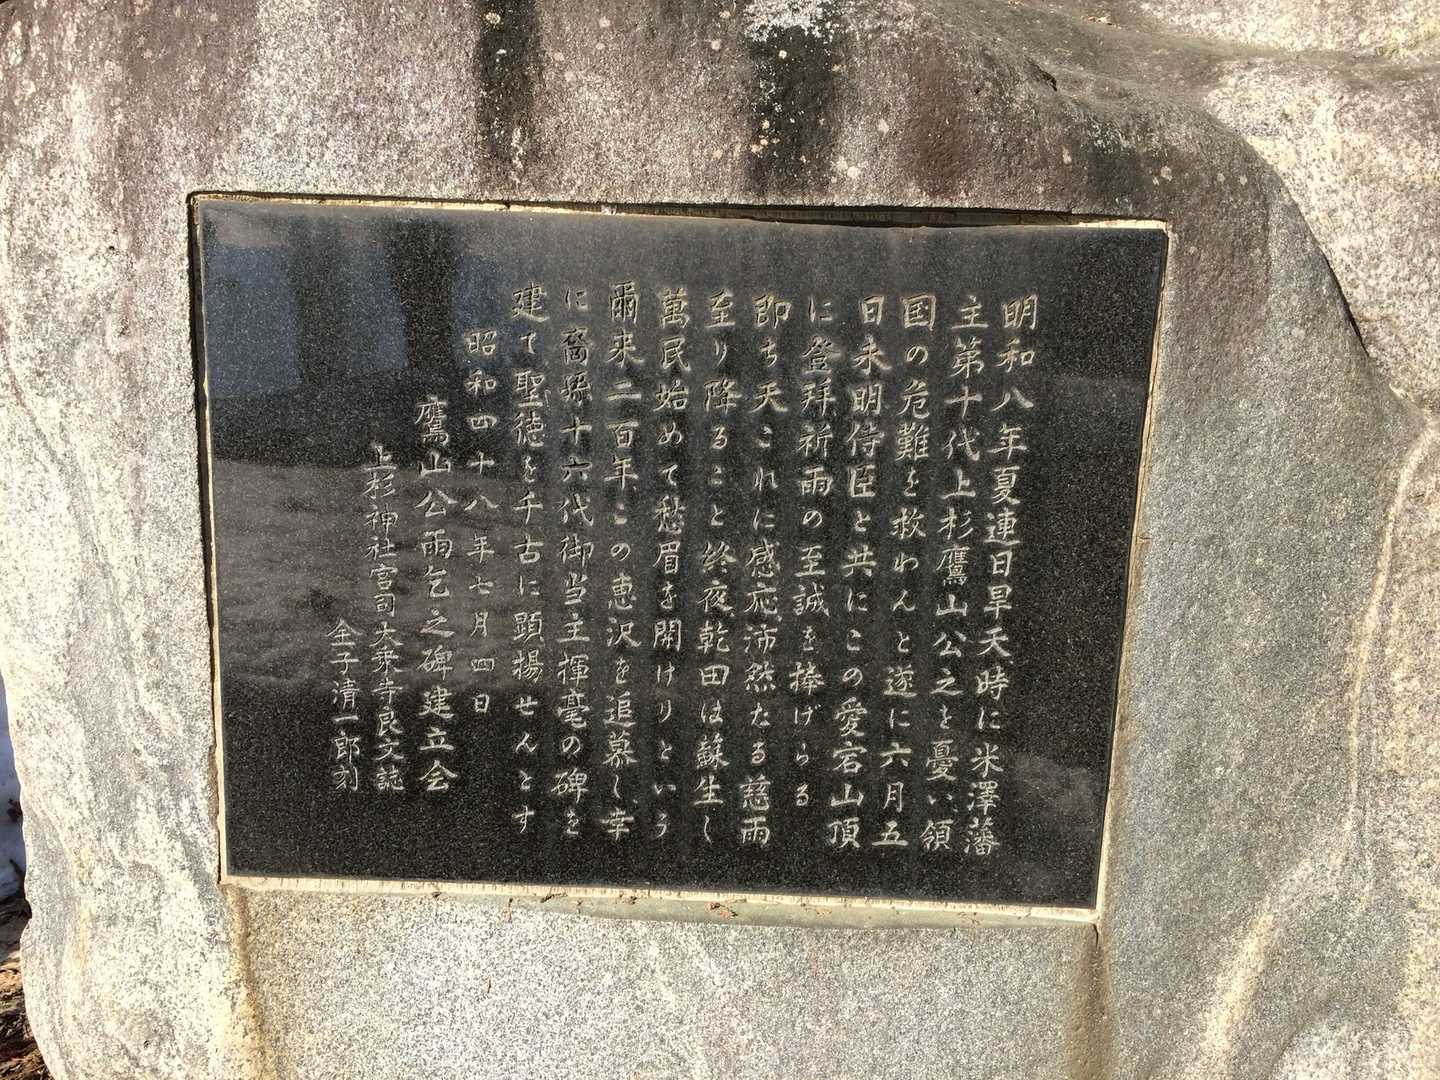 明和八年夏連日旱天時に米澤藩
主第十代上杉鷹山公之を憂い領
国の危難を救わんと遂に六月五
日未明侍臣と共にこの愛宕山頂
に登拝祈雨の至誠を捧げらる
即ち天これに感応沛然たる慈雨
至り降ること終夜乾田は蘇生し
萬民始めて愁眉を開けりという
爾来二百年この恵沢を追慕し幸
に裔孫十六代御当主揮毫の碑を
建て聖徳を千古に顕揚せんとす
昭和四十八年七月四日
鷹山公雨乞之碑建立会
上杉神社宮司大乗寺良文誌
金子清一郎刻